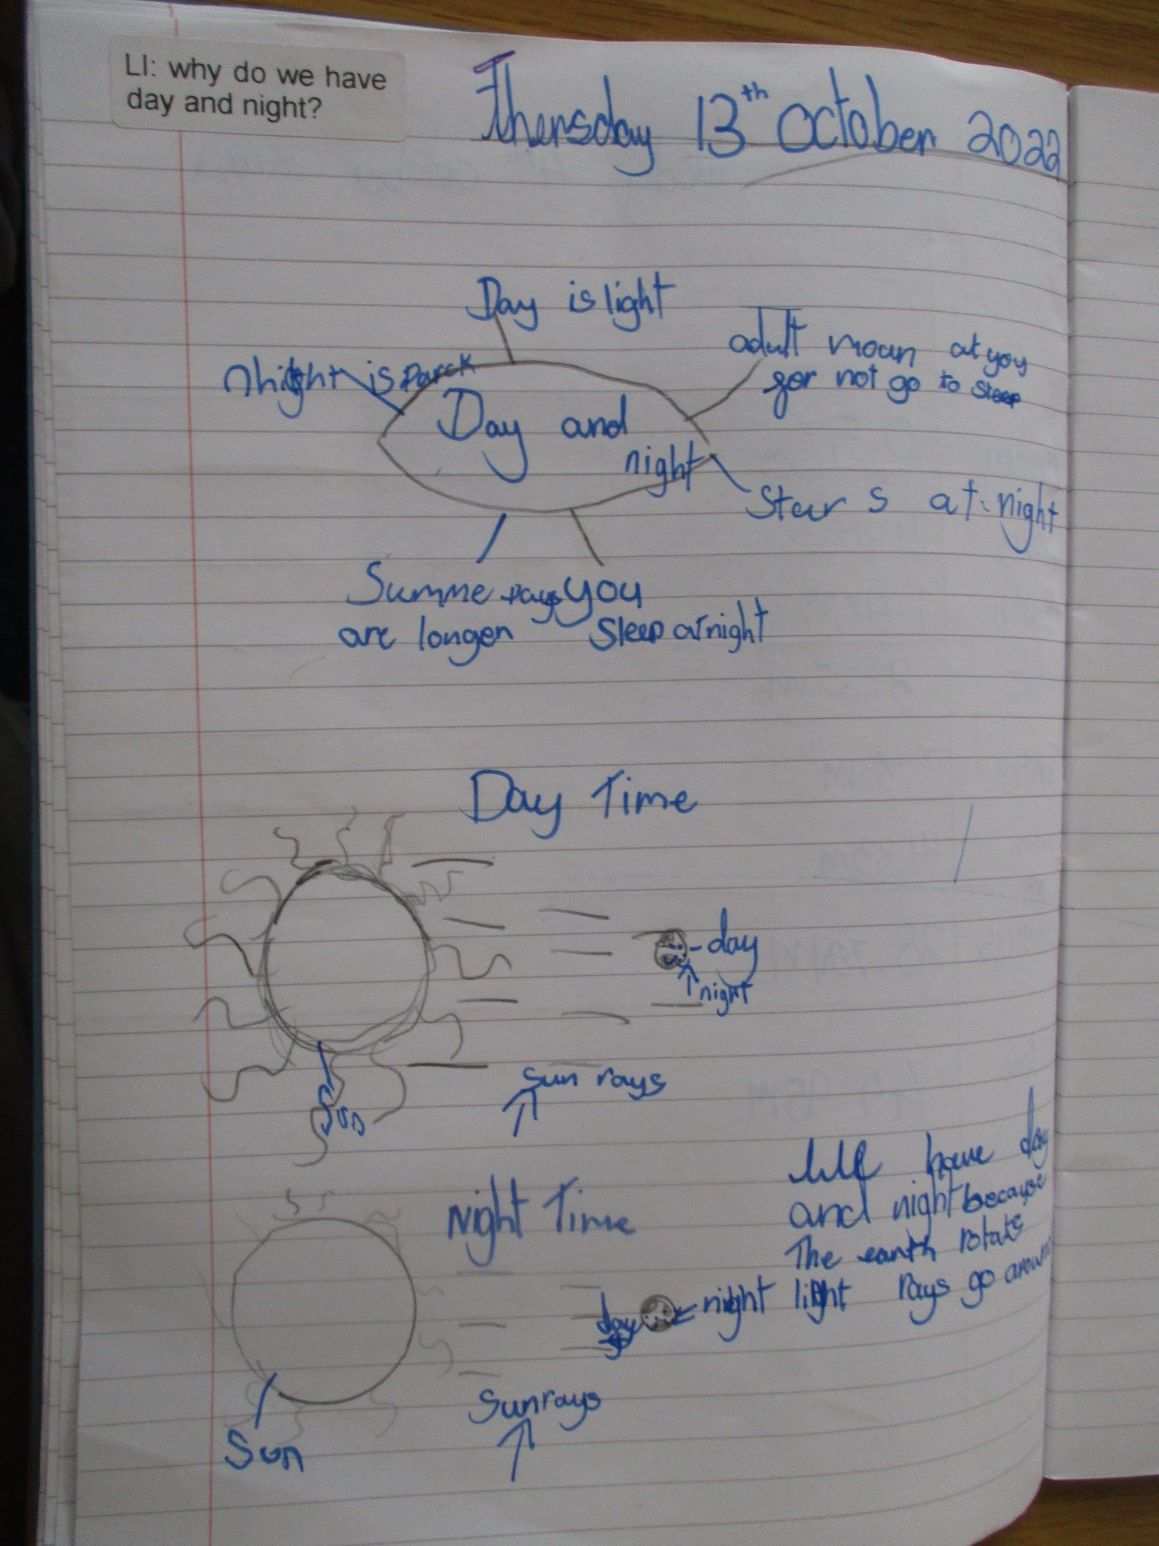 LI: why do we have
day and night?
Thersday 13th October 2022
Day is light
adult moan at you
for not go to sleep
nhight is Darck
Day and
night
Stars at night
Summe days
are longer
you
Sleep at night
Day Time
day
night
Sun
Sun rays
Night Time
We have day
and night because
The earth rotats
light rays go around
night
day
Sunrays
Sun